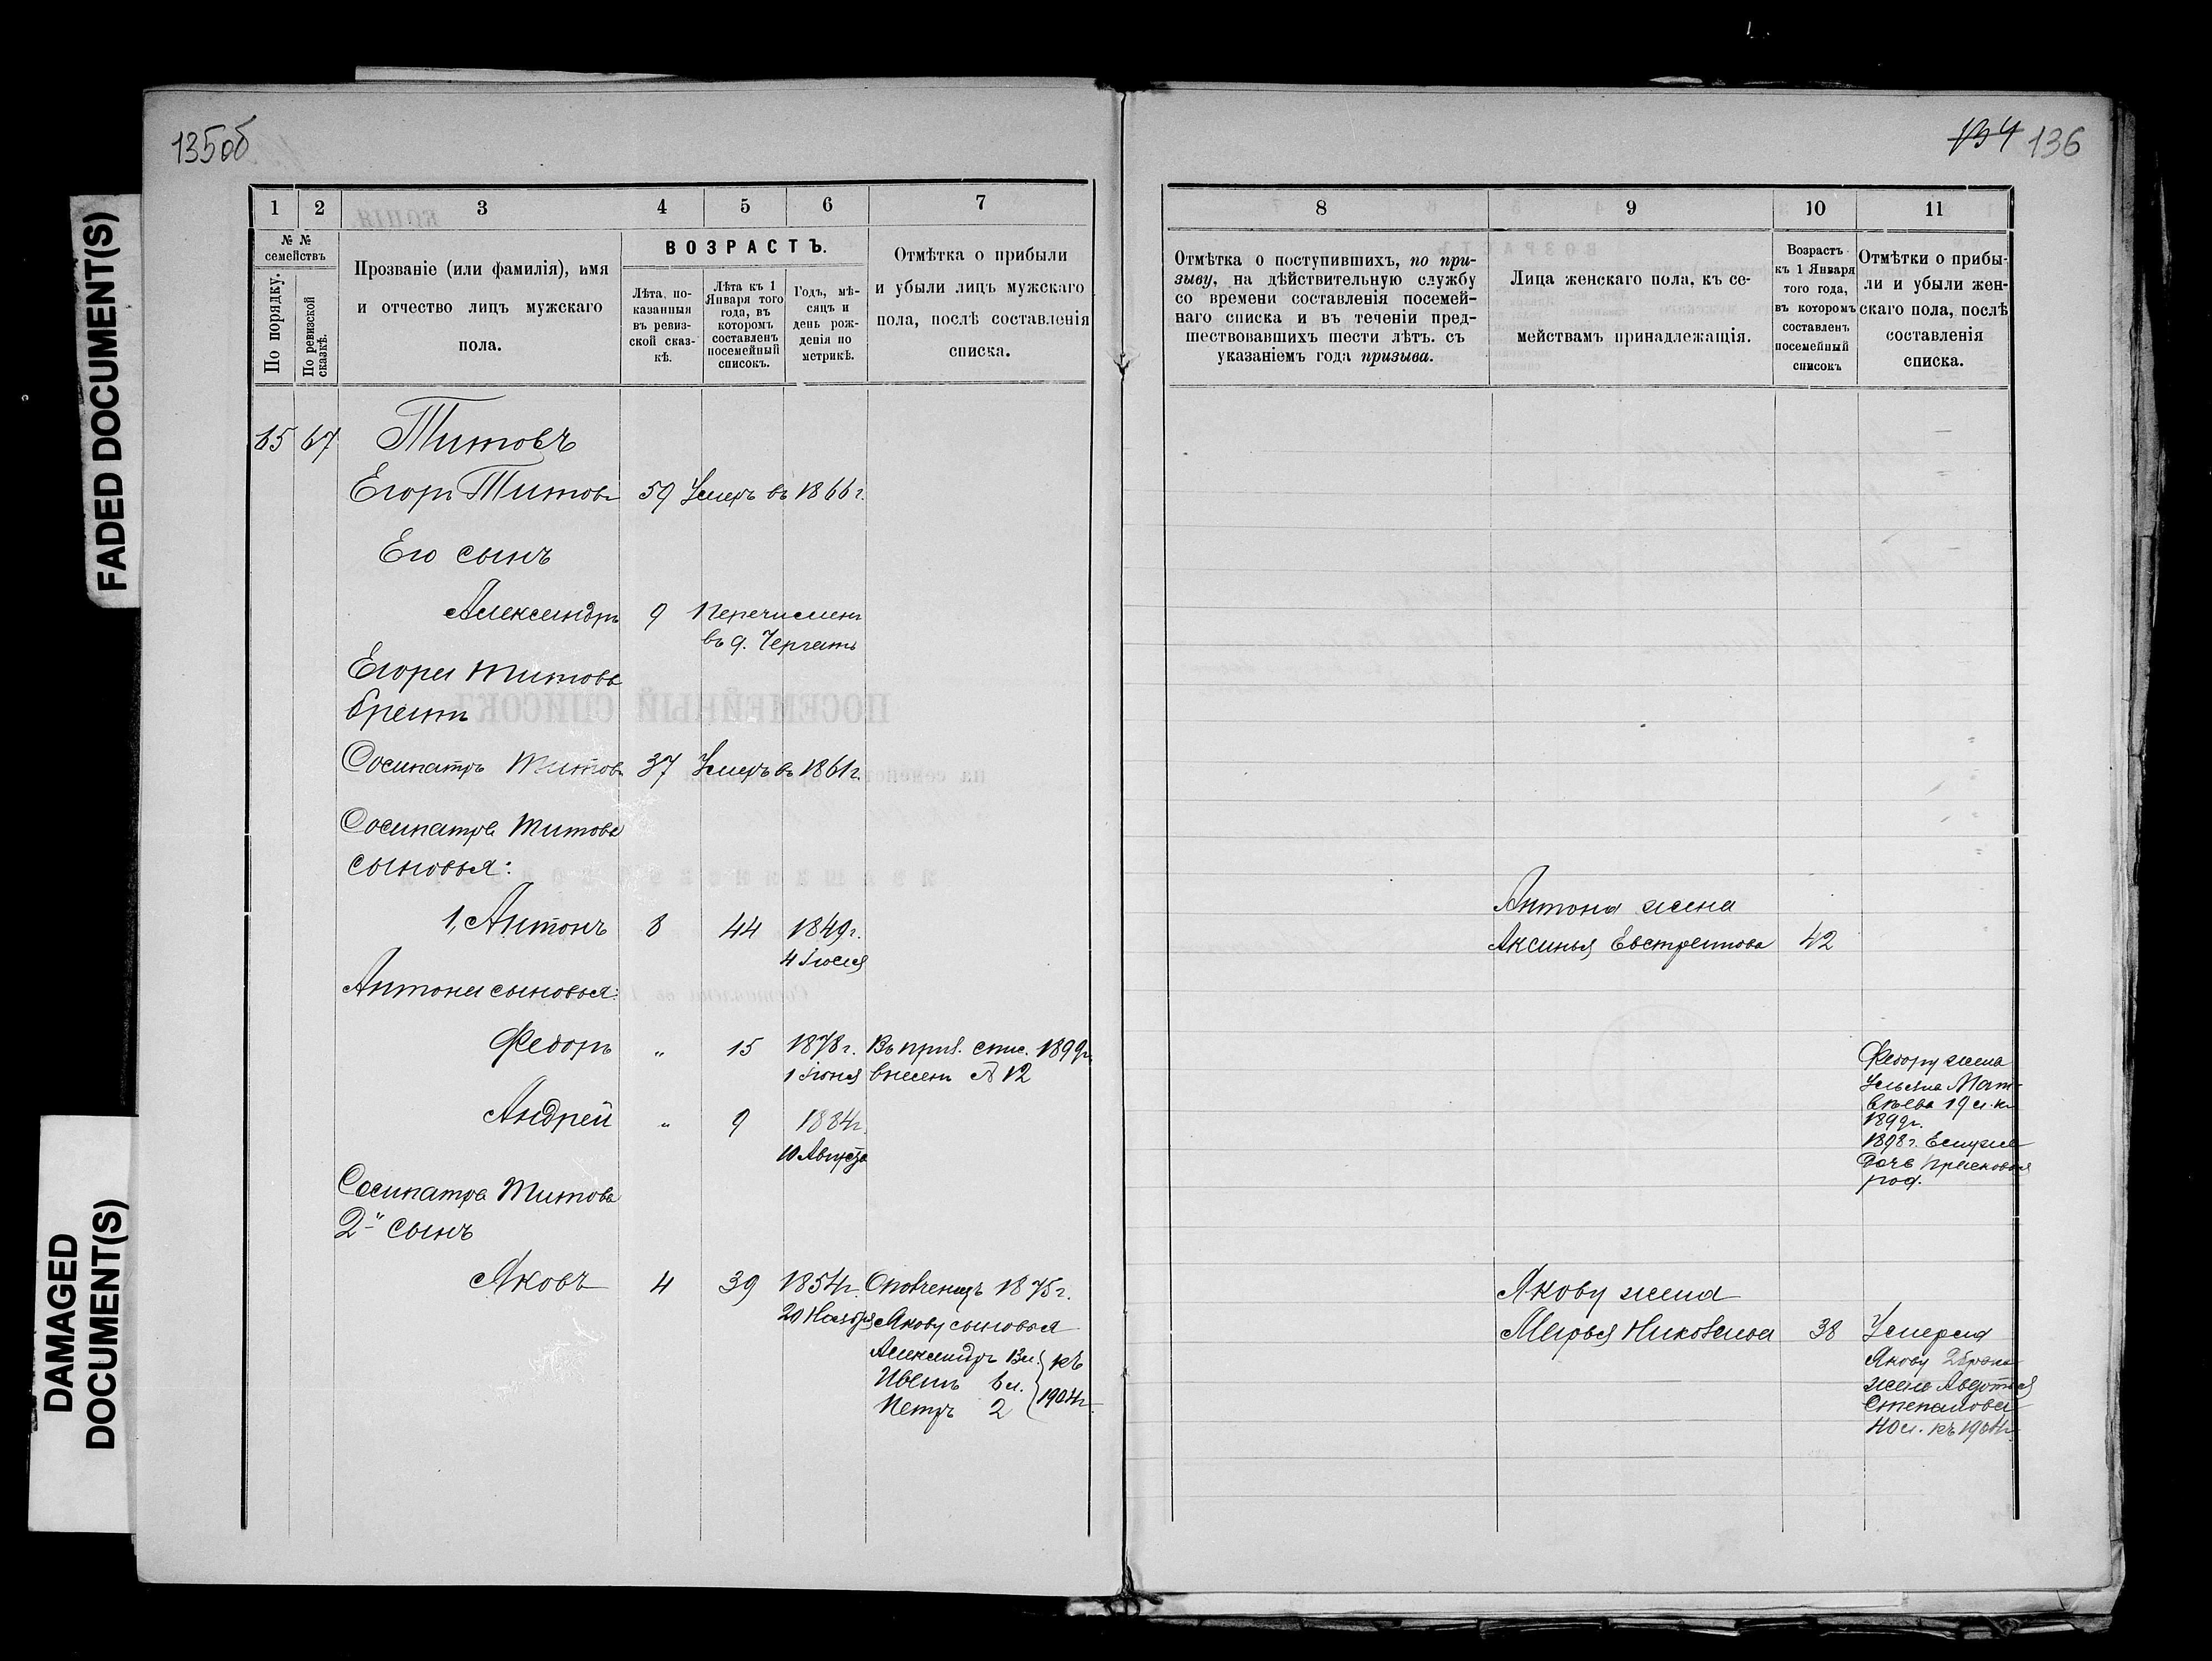 FADED DOCUMENT(S)
DAMAGED
DOCUMENT(S)
135об
1 2 3 4 5 6 7
№ №
семействъ
По порядку.
По ревизской
сказкѣ.
Прозваніе (или фамилія), имя
и отчество лицъ мужскаго
пола.
ВОЗРАСТЪ.
Лѣта, по-
казанныя
въ ревиз-
ской сказ-
кѣ.
Лѣта къ 1
Января того
года, въ
которомъ
составленъ
посемейный
списокъ.
Годъ, мѣ-
сяцъ и
день рож-
денія по
метрикѣ.
Отмѣтка о прибыли
и убыли лицъ мужскаго
пола, послѣ составленія
списка.
65 67 Титовъ
Егоръ Титовъ 59 Умеръ въ 1866 г.
Его сынъ
Александръ 9 Перечисленъ
въ д.
Егора Титова
братъ
Сосипатръ Титовъ 37 Умеръ въ 1861 г.
Сосипатра Титова
сыновья:
1, Антонъ 8 44 1849 г.
4 Іюля
Антона сыновья:
Федоръ „ 15 1878 г. Въ приз. спис. 1899 г.
1 Іюня внесенъ № 12
Андрей „ 9 1884 г.
10 Августа
Сосипатра Титова
2-й сынъ
Яковъ 4 39 1854 г. Ополченецъ 1875 г.
20 Ноября Якову сыновья
Александръ л. къ
Иванъ 6 л. 1904 г.
Петръ 2
134 136
8 9 10 11
Отмѣтка о поступившихъ, по при-
зыву, на дѣйствительную службу
со времени составленія посемей-
наго списка и въ теченіи пред-
шествовавшихъ шести лѣтъ. съ
указаніемъ года призыва.
Лица женскаго пола, къ се-
мействамъ принадлежащія.
Возрастъ
къ 1 Января
того года,
въ которомъ
составленъ
посемейный
списокъ
Отмѣтки о прибы-
ли и убыли жен-
скаго пола, послѣ
составленія
списка.
Антона жена
Аксинья Евстратова 42
Федору жена
Ульяна Мат-
вѣева 19 л. къ
1899 г.
1898 г. Ему же
дочь Прасковья
род.
Якову жена
Марья Николаева 38 Умерла
Якову 2 брака
жена Авдотья
Степанова
40 л. къ 1904 г.